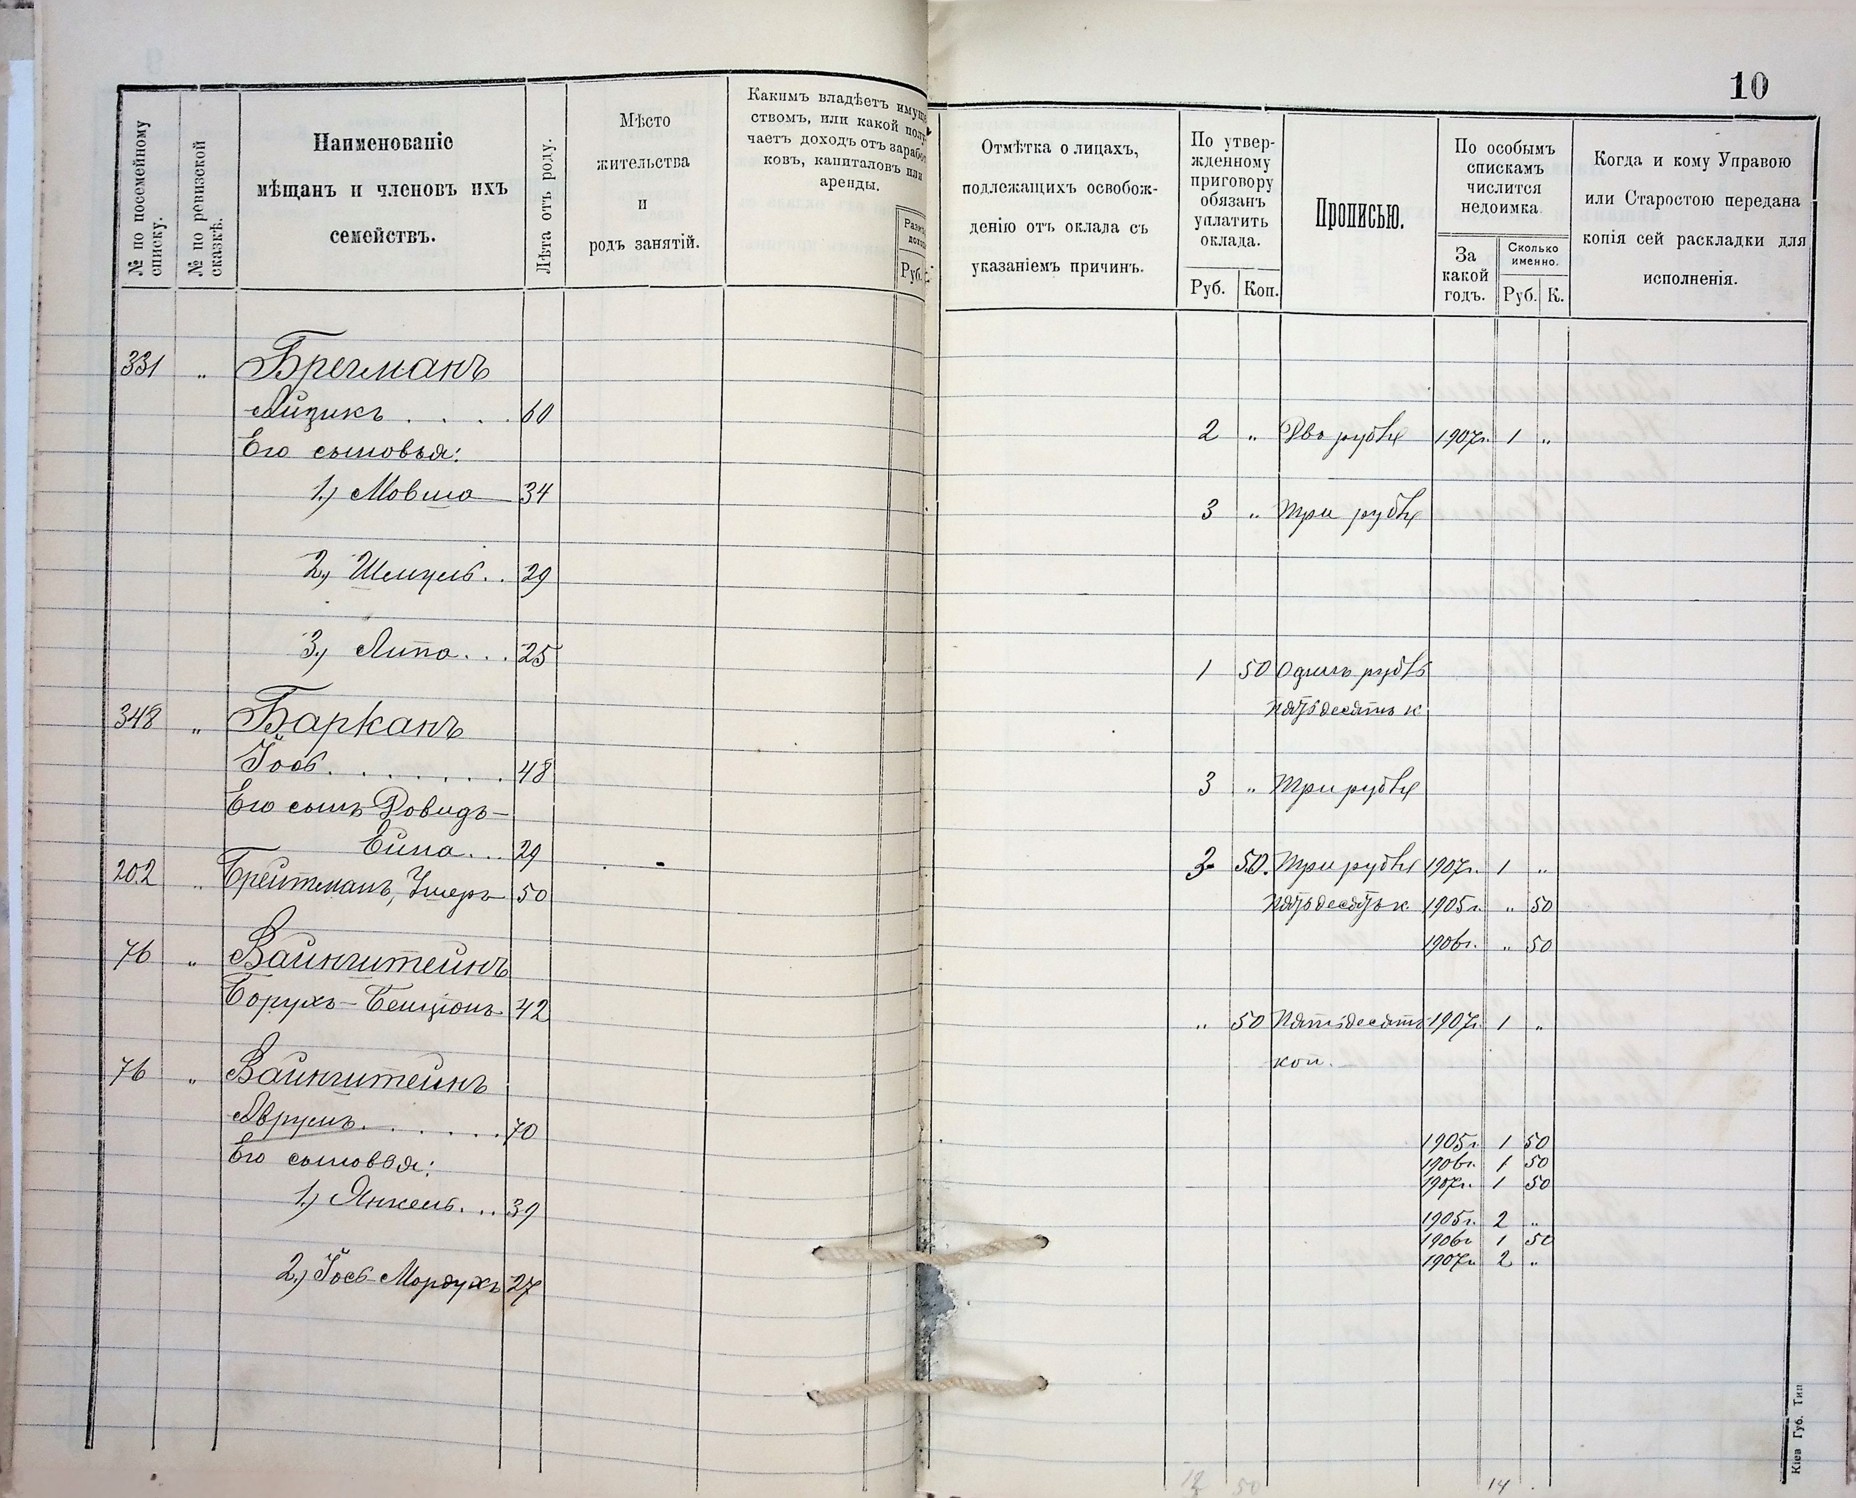 10
№ по посемейному списку.
№ по ревизской сказкѣ.
Наименованіе
мѣщанъ и членовъ ихъ
семействъ.
Лѣта отъ роду.
Мѣсто
жительства
и
родъ занятій.
Какимъ владѣетъ имуще
ствомъ, или какой полу
чаетъ доходъ отъ заработ
ковъ, капиталовъ или
аренды.
Руб.
Отмѣтка о лицахъ,
подлежащихъ освобож-
денію отъ оклада съ
указаніемъ причинъ.
По утвер-
жденному
приговору
обязанъ
уплатить
оклада.
Руб. Коп.
Прописью.
По особымъ
спискамъ
числится
недоимка.
За
какой
годъ.
Сколько
именно.
Руб. К.
Когда и кому Управою
или Старостою передана
копія сей раскладки для
исполненія.
331 „ Брегманъ
Айзикъ . . . . 60 2 „ Два рубля 1907г. 1 „
Его сыновья:
1.) Мовша 34 3 „ Три рубля
2.) Шмуль . . 29
3.) Липа . . . 25 1 50 Одинъ рубль
пятьдесятъ к
348 „ Барканъ
Іось . . . . . . . . 48 3 „ Три рубля
Его сынъ Довидъ-
Ейна . . . 29 3 50. Три рубля 1907г. 1 „
202 „ Брейтманъ, Ушеръ 50 пятьдесятъ к. 1905г. „ 50
1906г. „ 50
76 „ Вайнштейнъ
Борухъ-Бенціонъ 42 „ 50 Пятьдесятъ 1907г. 1 „
коп.
76 „ Вайнштейнъ
Аврумъ . . . . . . . 70 1905г. 1 50
Его сыновья: 1906г. 1 50
1907г. 1 50
1.) Янкель . . . 39 1905г. 2 „
1906г 1 50
1907г 2 „
2.) Іось-Мордухъ 27
50 14
Кіев Губ. Тип